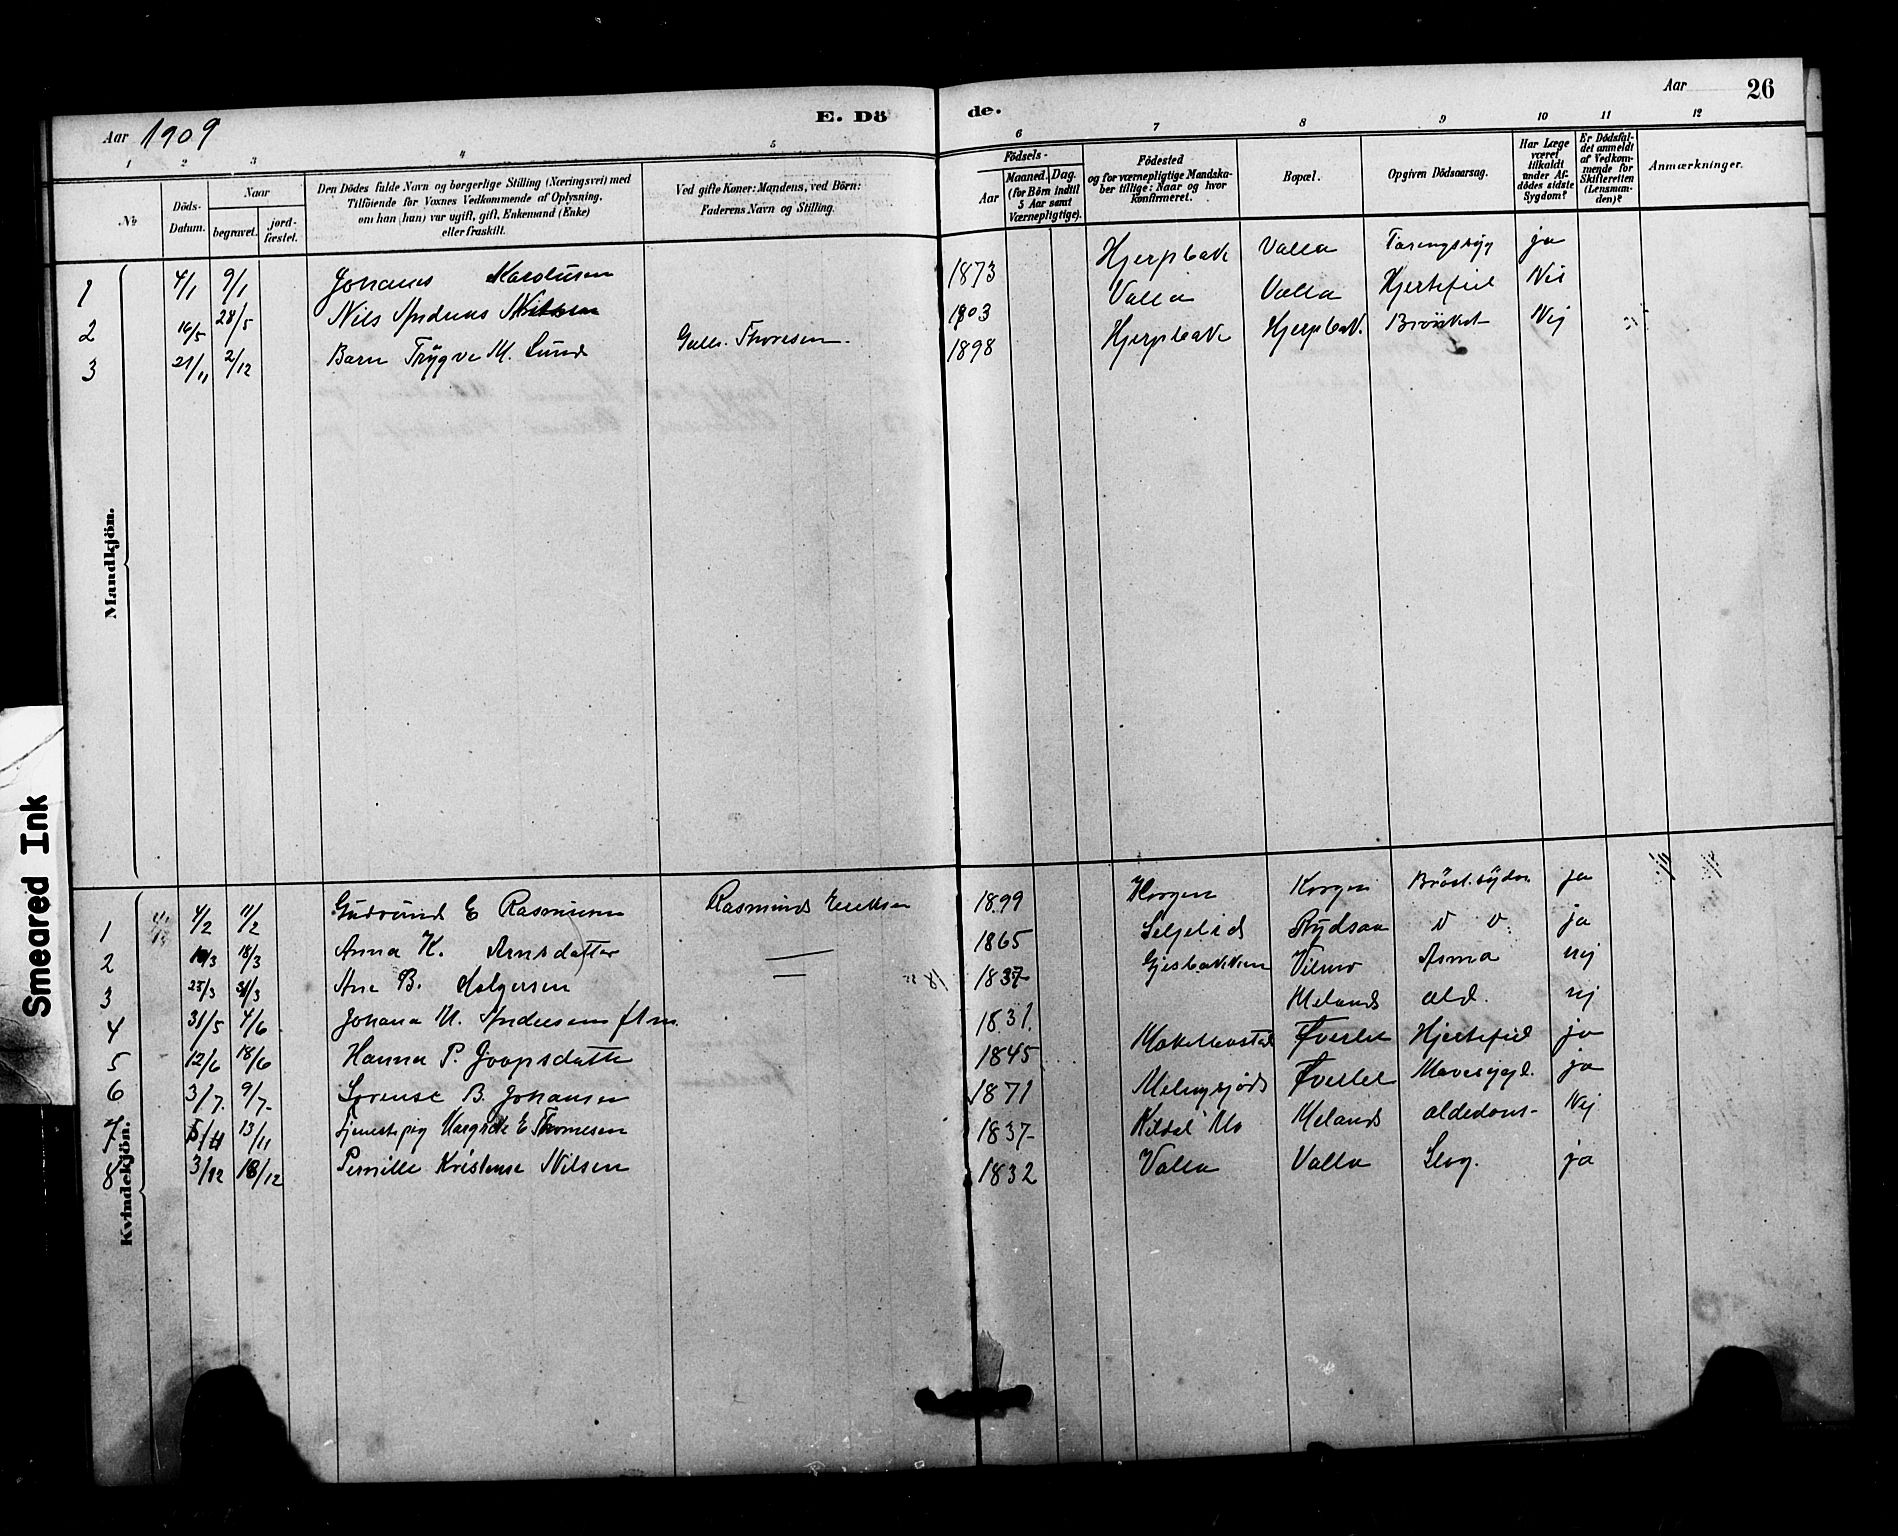 E. Döde.
Aar 1909
Aar 26
1 2 3 4 5 6 7 8 9 10 11 12
No.
Döds-Datum.
Naar
begravet.
jord-fæstet.
Den Dödes fulde Navn og borgerlige Stilling (Næringsvei) med
Tilföiende for Voxnes Vedkommende af Oplysning,
om han (hun) var ugift, gift, Enkemand (Enke)
eller fraskilt.
Ved gifte Koner: Mandens, ved Börn:
Faderens Navn og Stilling.
Födsels-
Aar
Maaned. Dag.
(for Börn indtil
5 Aar samt
Værnepligtige).
Födested
og for værnepligtige Mandska-
ber tillige: Naar og hvor
konfirmeret.
Bopæl.
Opgiven Dödsaarsag.
Har Læge
været
tilkaldt
under Af-
dödes sidste
Sygdom?
Er Dödsfal-
det anmeldt
af Vedkom-
mende for
Skifteretten
(Lensman-
den)?
Anmærkninger.
Mandkjön.
1 4/1 9/1 Johannes 1873 Hjerpbak Valla ja
2 16/5 28/5 Nils Andreas Valla Valla Hjertefeil Nei
3 21/11 2/12 Barn Trygve M. Lund Thoresen. 1898 Hjerpbakk Hjerpbak. Nej
Kvindekjön.
1 4/2 11/2 Gudrund E Rasmusen Rasmund Eriksen 1899 Korgen Korgen ja
2 18/3 Anna K. Arnsdatter — 1865 Seljelid ja
3 31/3 Ane B. Holgersen = 1837 Asma nej
4 31/5 4/6 Johana M. Andersen 1831. Meland ald. nej
5 12/6 18/6 Hanna P. 1845 Hjertefeil ja
6 3/7. 9/7. Sorense B. Johansen 1871 ja
7 13/11 Margrete E Thomesen 1837 Mo Meland Nej
8 3/12 18/12 Pernille Kristense Nilsen 1832 Valla Valla Slag. ja
Smeared Ink